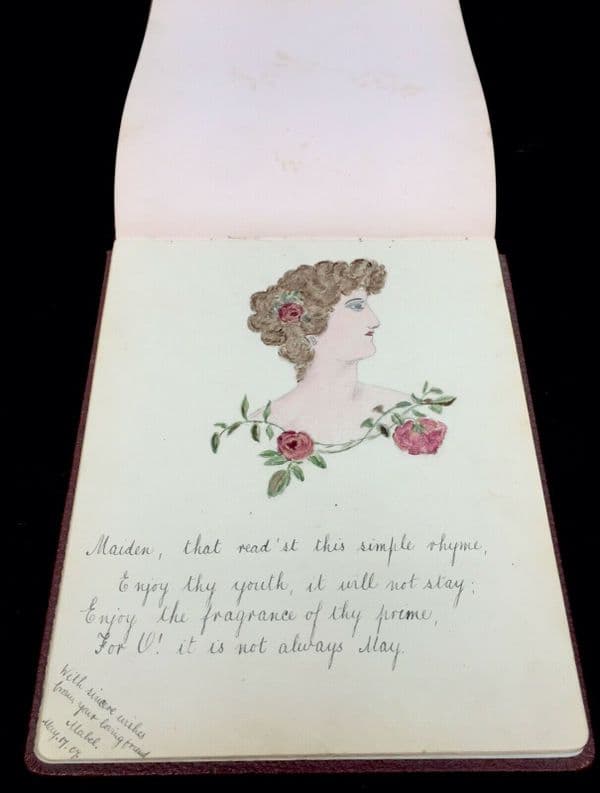 Maiden, that read'st this simple rhyme,
Enjoy thy youth, it will not stay;
Enjoy the fragrance of thy prime,
For O! it is not always May.
With sincere wishes
from your loving friend
Mabel.
May. 17. 07.